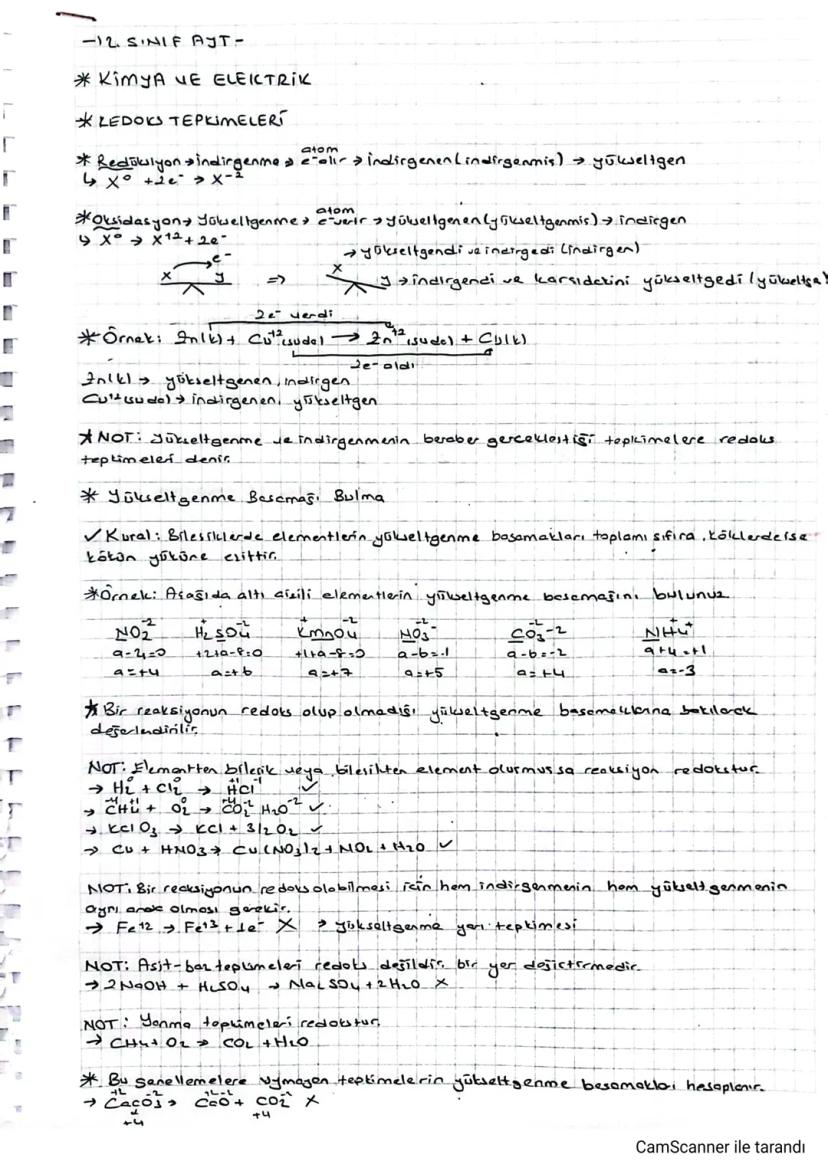 -12. SINIF AYT-
* KİMYA VE ELEKTRİK
* REDOKS TEPKİMELERİ
* Redüksiyon → indirgenme → atom e⁻ alır → indirgenen (indirgenmiş) → yükseltgen
↳ X⁰ + 2e⁻ → X⁻²
* Oksidasyon → Yükseltgenme → atom e⁻ verir → yükseltgenen (yükseltgenmiş) → indirgen
↳ X⁰ → X⁺² + 2e⁻
→ yükseltgendi ve indirgedi (indirgen)
X e⁻ y ⇒ X y → indirgendi ve karşıdakini yükseltgedi
2e⁻ verdi
* Örnek: Zn(k) + Cu⁺²(suda) → Zn⁺²(suda) + Cu(k)
2e⁻ aldı
Zn(k) → yükseltgenen, indirgen
Cu⁺²(suda) → indirgenen, yükseltgen
* NOT: Yükseltgenme ve indirgenmenin beraber gerçekleştiği tepkimelere redoks
tepkimeleri denir.
* Yükseltgenme Basamağı Bulma
✓ Kural: Bileşiklerde elementlerin yükseltgenme basamakları toplamı sıfıra, köklerde ise
kökün yüküne eşittir.
* Örnek: Aşağıda altı çizili elementlerin yükseltgenme basamağını bulunuz
NO₂⁻² H₂SO₄ KMnO₄ NO₃⁻ CO₃⁻² NH₄⁺
a-4=0 +2+a-8=0 +1+a-8=0 a-6=-1 a-6=-2 a+4=+1
a=+4 a=+6 a=+7 a=+5 a=+4 a=-3
* Bir reaksiyonun redoks olup olmadığı yükseltgenme basamaklarına bakılarak
değerlendirilir.
NOT: Elementten bileşik veya bileşikten element oluşmuşsa reaksiyon redokstur.
→ H₂⁰ + Cl₂⁰ → H⁺¹Cl⁻¹ ✓
→ C⁻⁴H₄⁺¹ + O₂⁰ → C⁺⁴O₂⁻² H₂O⁻² ✓
→ KClO₃ → KCl + 3/2O₂ ✓
→ Cu + HNO₃ → Cu(NO₃)₂ + NO₂ + H₂O ✓
NOT: Bir reaksiyonun redoks olabilmesi için hem indirgenmenin hem yükseltgenmenin
aynı anda olması gerekir.
→ Fe⁺² → Fe⁺³ + 1e⁻ X → yükseltgenme yarı tepkimesi
NOT: Asit-baz tepkimeleri redoks değildir, bir yer değiştirmedir.
→ 2NaOH + H₂SO₄ → Na₂SO₄ + 2H₂O X
NOT: Yanma tepkimeleri redokstur.
→ CH₄ + O₂ → CO₂ + H₂O
* Bu genellemelere uymayan tepkimelerin yükseltgenme basamakları hesaplanır.
→ Ca⁺²CO₃⁻² → Ca⁺²O⁻² + CO₂⁻² X
+4 +4
CamScanner ile tarandı